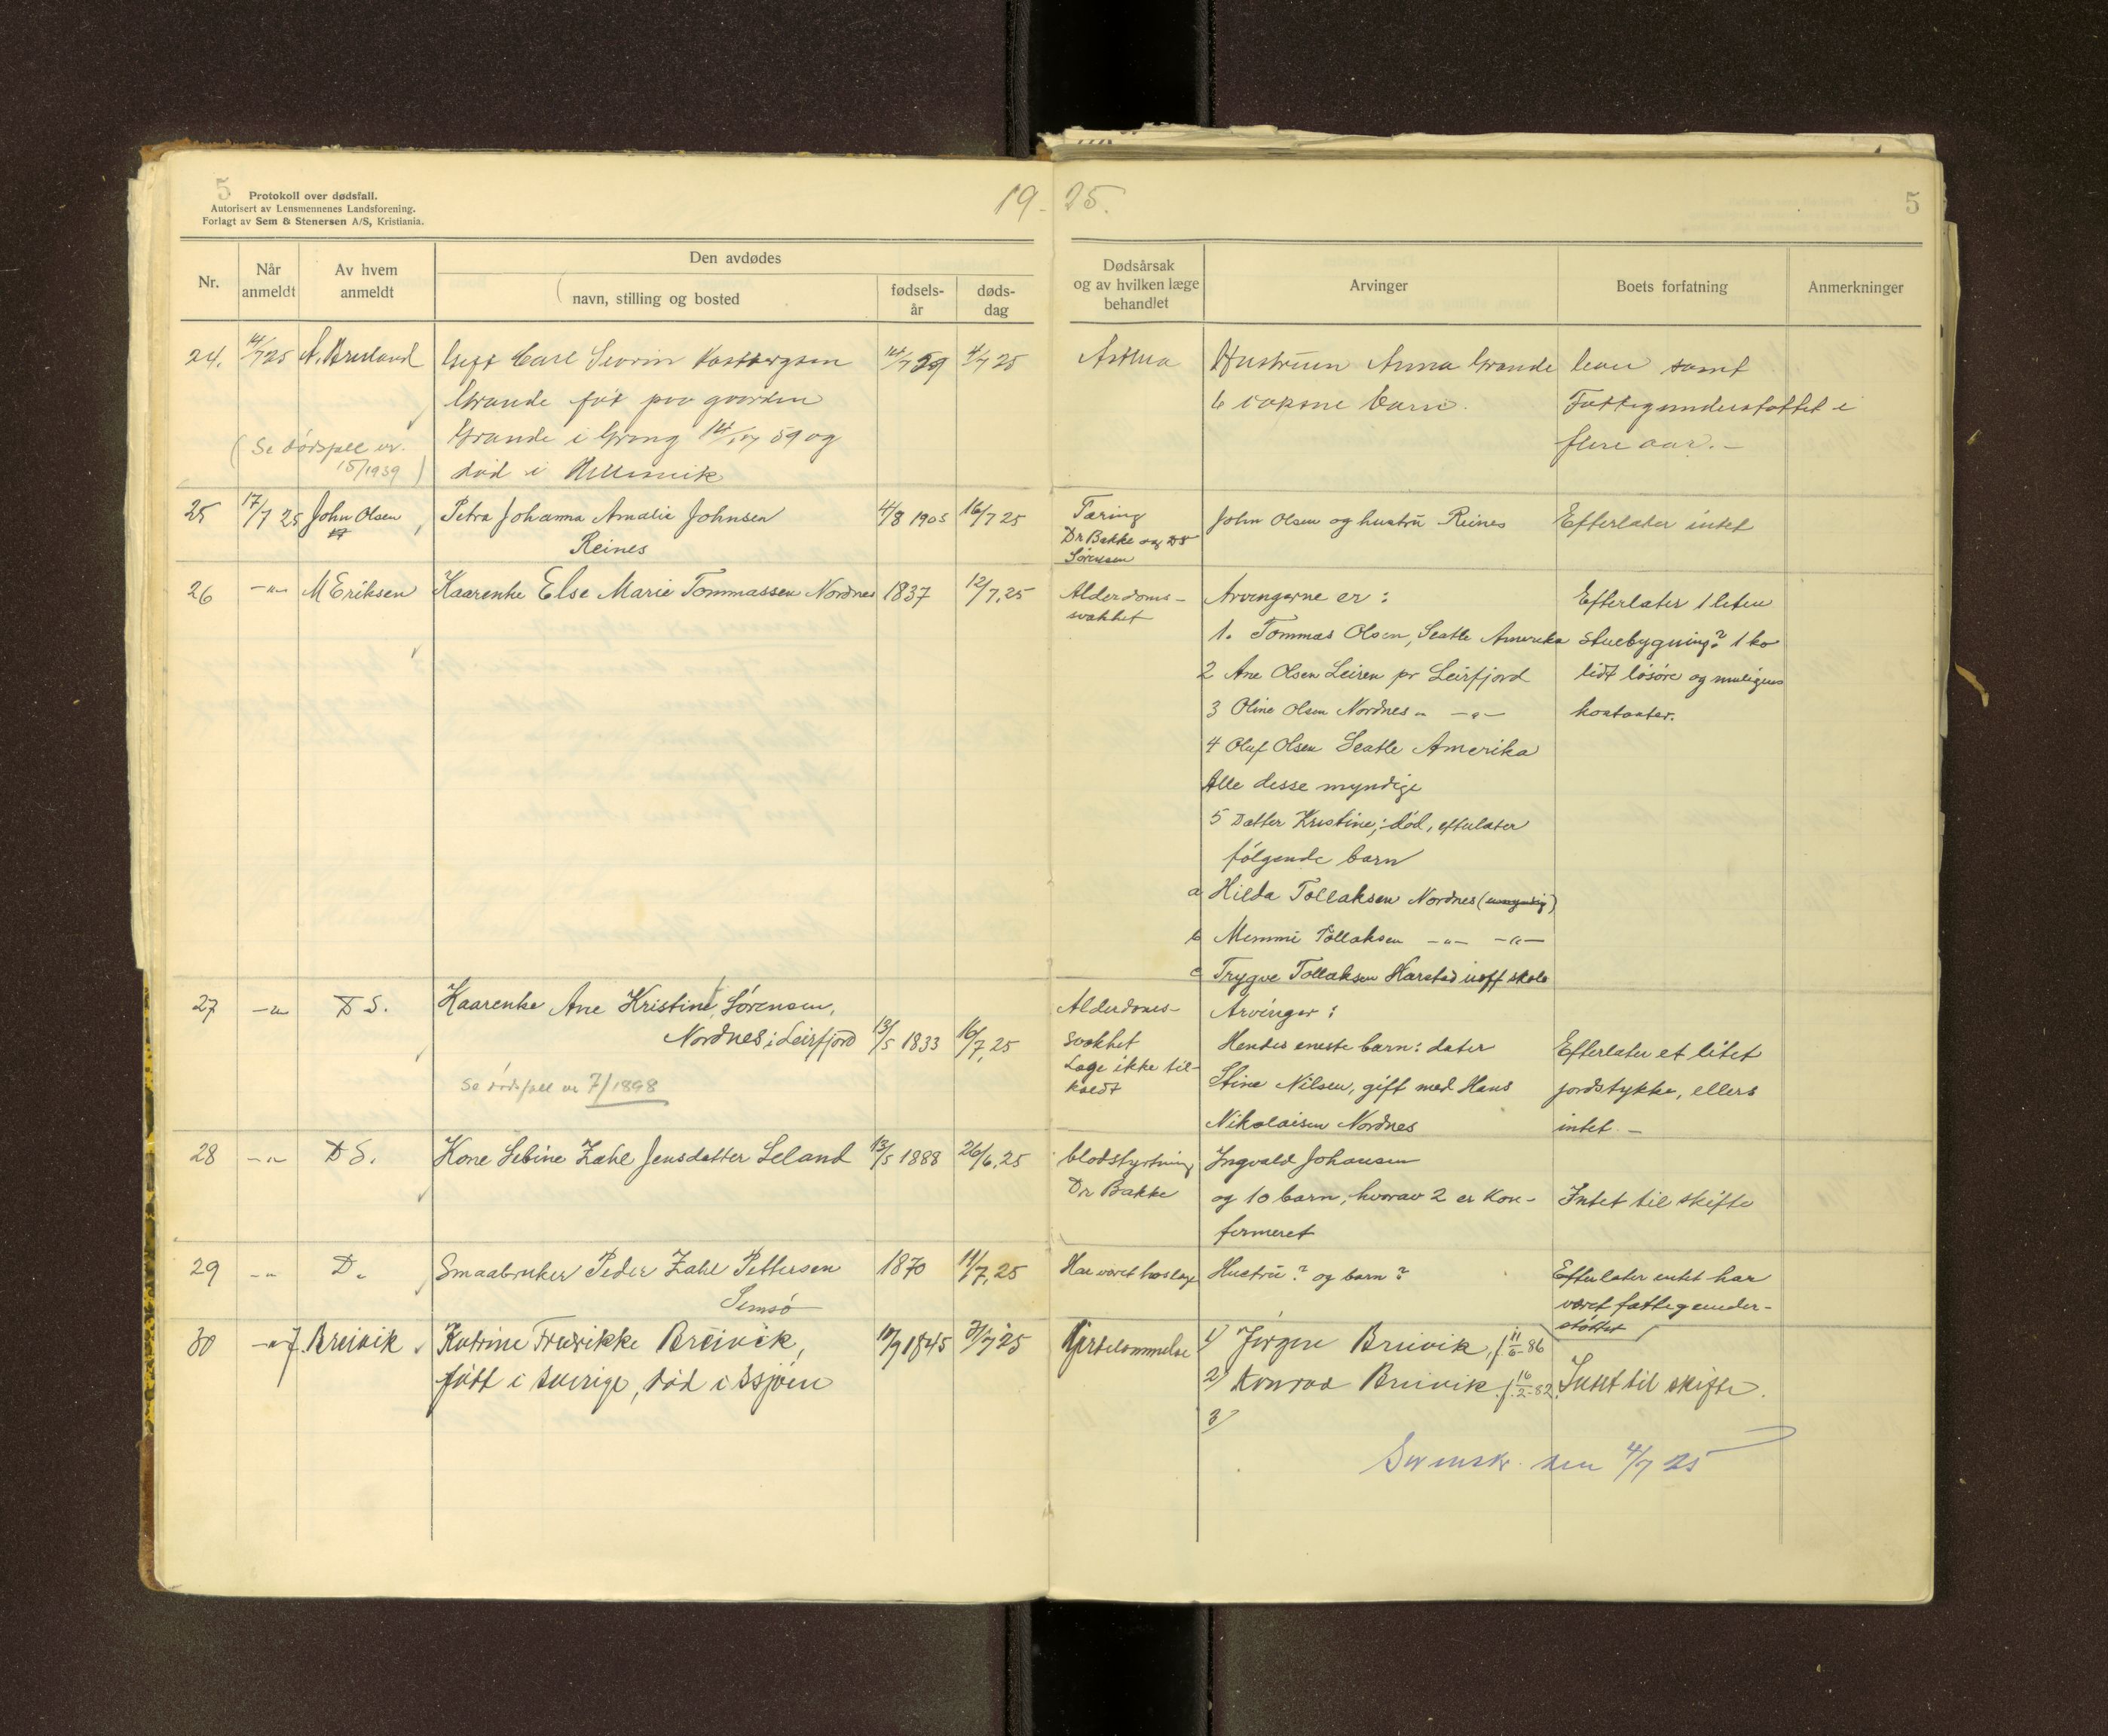 5 Protokoll over dødsfall.
Autorisert av Lensmennenes Landsforening.
Forlagt av Sem & Stenersen A/S, Kristiania.
19 25.
5
Nr.
Når anmeldt
Av hvem anmeldt
Den avdødes
navn, stilling og bosted
fødsels-år
døds-dag
Dødsårsak og av hvilken læge behandlet
Arvinger
Boets forfatning
Anmerkninger
24. 14/7 25
Gift Carl Sevrin
14/7 59 4/7 25
Asthma
Hustruen Anna Grande
6 voksne barn.
samt
Fattigunderstøttet i
flere aar. -
Grande født paa gaarden
Grande i Grong 14/7 59 og
død i
(Se dødsfall nr.
15/1939)
25 17/7 25 John Olsen
Petra Johanna Amalie Johnsen
Reines
4/8 1905 16/7 25
Tæring
Dr Bakke og Dr
Sørensen
John Olsen og hustru Reines
Efterlater intet
26 -"- M Eriksen
Kaarenke Else Marie Tommassen Nordnes
1837 12/7.25
Alderdoms-
svakhet
Arvingerne er :
1. Tommas Olsen, Seatle Amerika
2 Ane Olsen Leiren pr Leirfjord
3 Oline Olsen Nordnes " -"-
4 Oluf Olsen Seatle Amerika
Alle desse myndige
5 Datter Kristine; død, efterlater
følgende barn
a Hilda Tollaksen Nordnes (umyndig)
b Memmi Tollaksen -"- -"-
c Trygve Tollaksen Harstad uoff skole
Efterlater 1 liten
stuebygning? 1 ko
lidt løsøre og muligens
kontanter.
27 -"- D S.
Kaarenke Ane Kristine Sørensen,
Nordnes i Leirfjord
13/5 1833 16/7.25
Se dødsfall nr 7/1898
Alderdoms-
svakhet
Læge ikke til-
kaldt
Arvinger :
Hendes eneste barn: dater
Stine Nilsen, gift med Hans
Nikolaisen Nordnes
Efterlater et litet
jordstykke, ellers
intet -
28 -"- D S.
Kone Sebine Zahl Jensdatter Leland
13/5 1888 26/6.25
blodstyrtning
Dr Bakke
Ingvald Johansen
og 10 barn, hvorav 2 er kon-
fermeret
Intet til skifte
29 -"- D.
Smaabruker Peder Zahl Pettersen
1870 11/7.25
Har været hos læge
Hustru? og barn?
Efterlater intet har
været fattigunder-
støttet
30 -"- J. Breivik
Katrine Fredrikke Breivik,
født i Sverige, død i
10/9 1845 21/7 25
1) Jørgen Breivik, f. 11/6-86
2) Konrad Breivik f. 16/2-82.
3)
Intet til skifte.
den 4/7 25